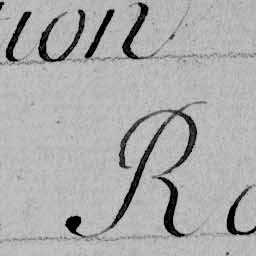 tion
Ro